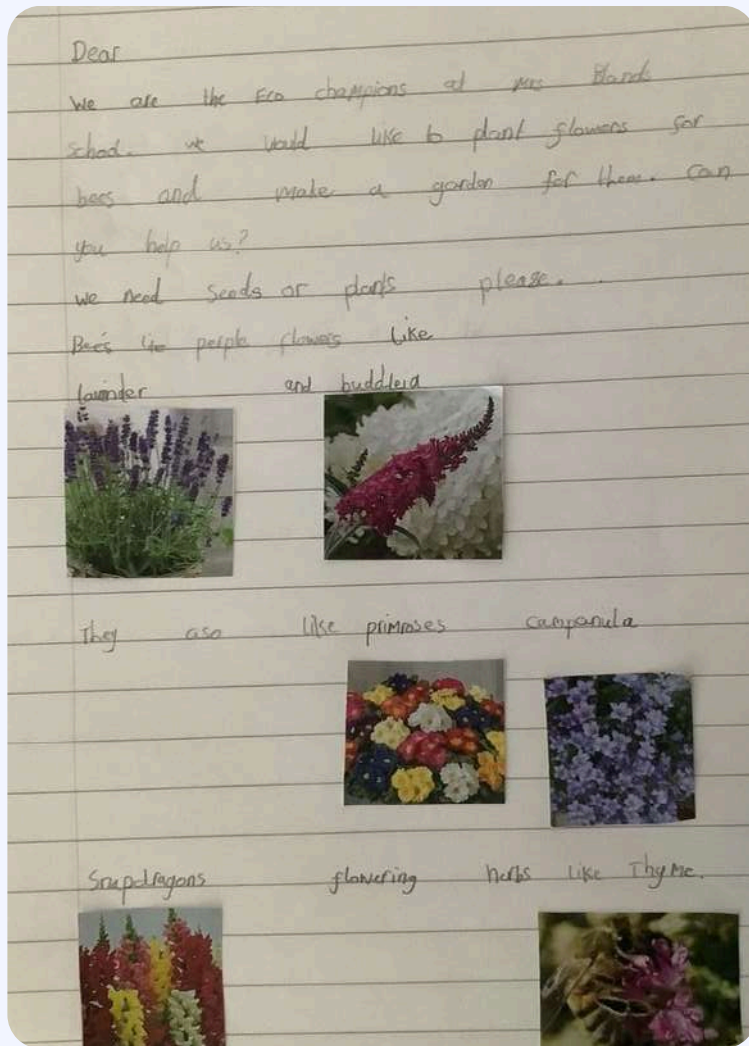 Dear
We are the Eco champions at Mrs Blands
school. we would like to plant flowers for
bees and make a garden for them. Can
you help us?
We need seeds or plants please.
Bees lie perple flowers like
lavinder and buddleia
They aso like primroses campanula
Snapdragons flowering herbs like Thyme.